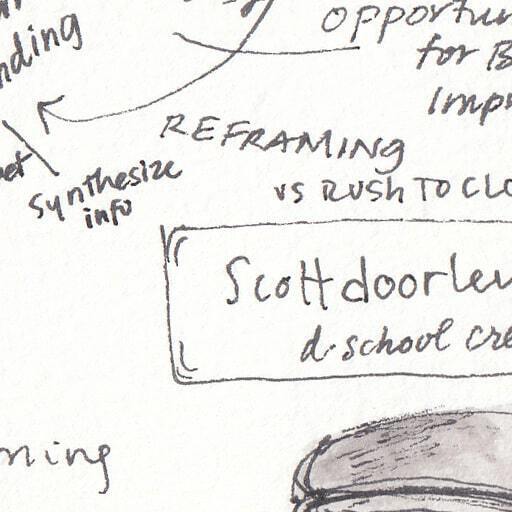 nding
opportun
for B
Imp
REFRAMING
vs RUSH TO CLO
synthesize
info
Scottdoorley
d.school cre
ning